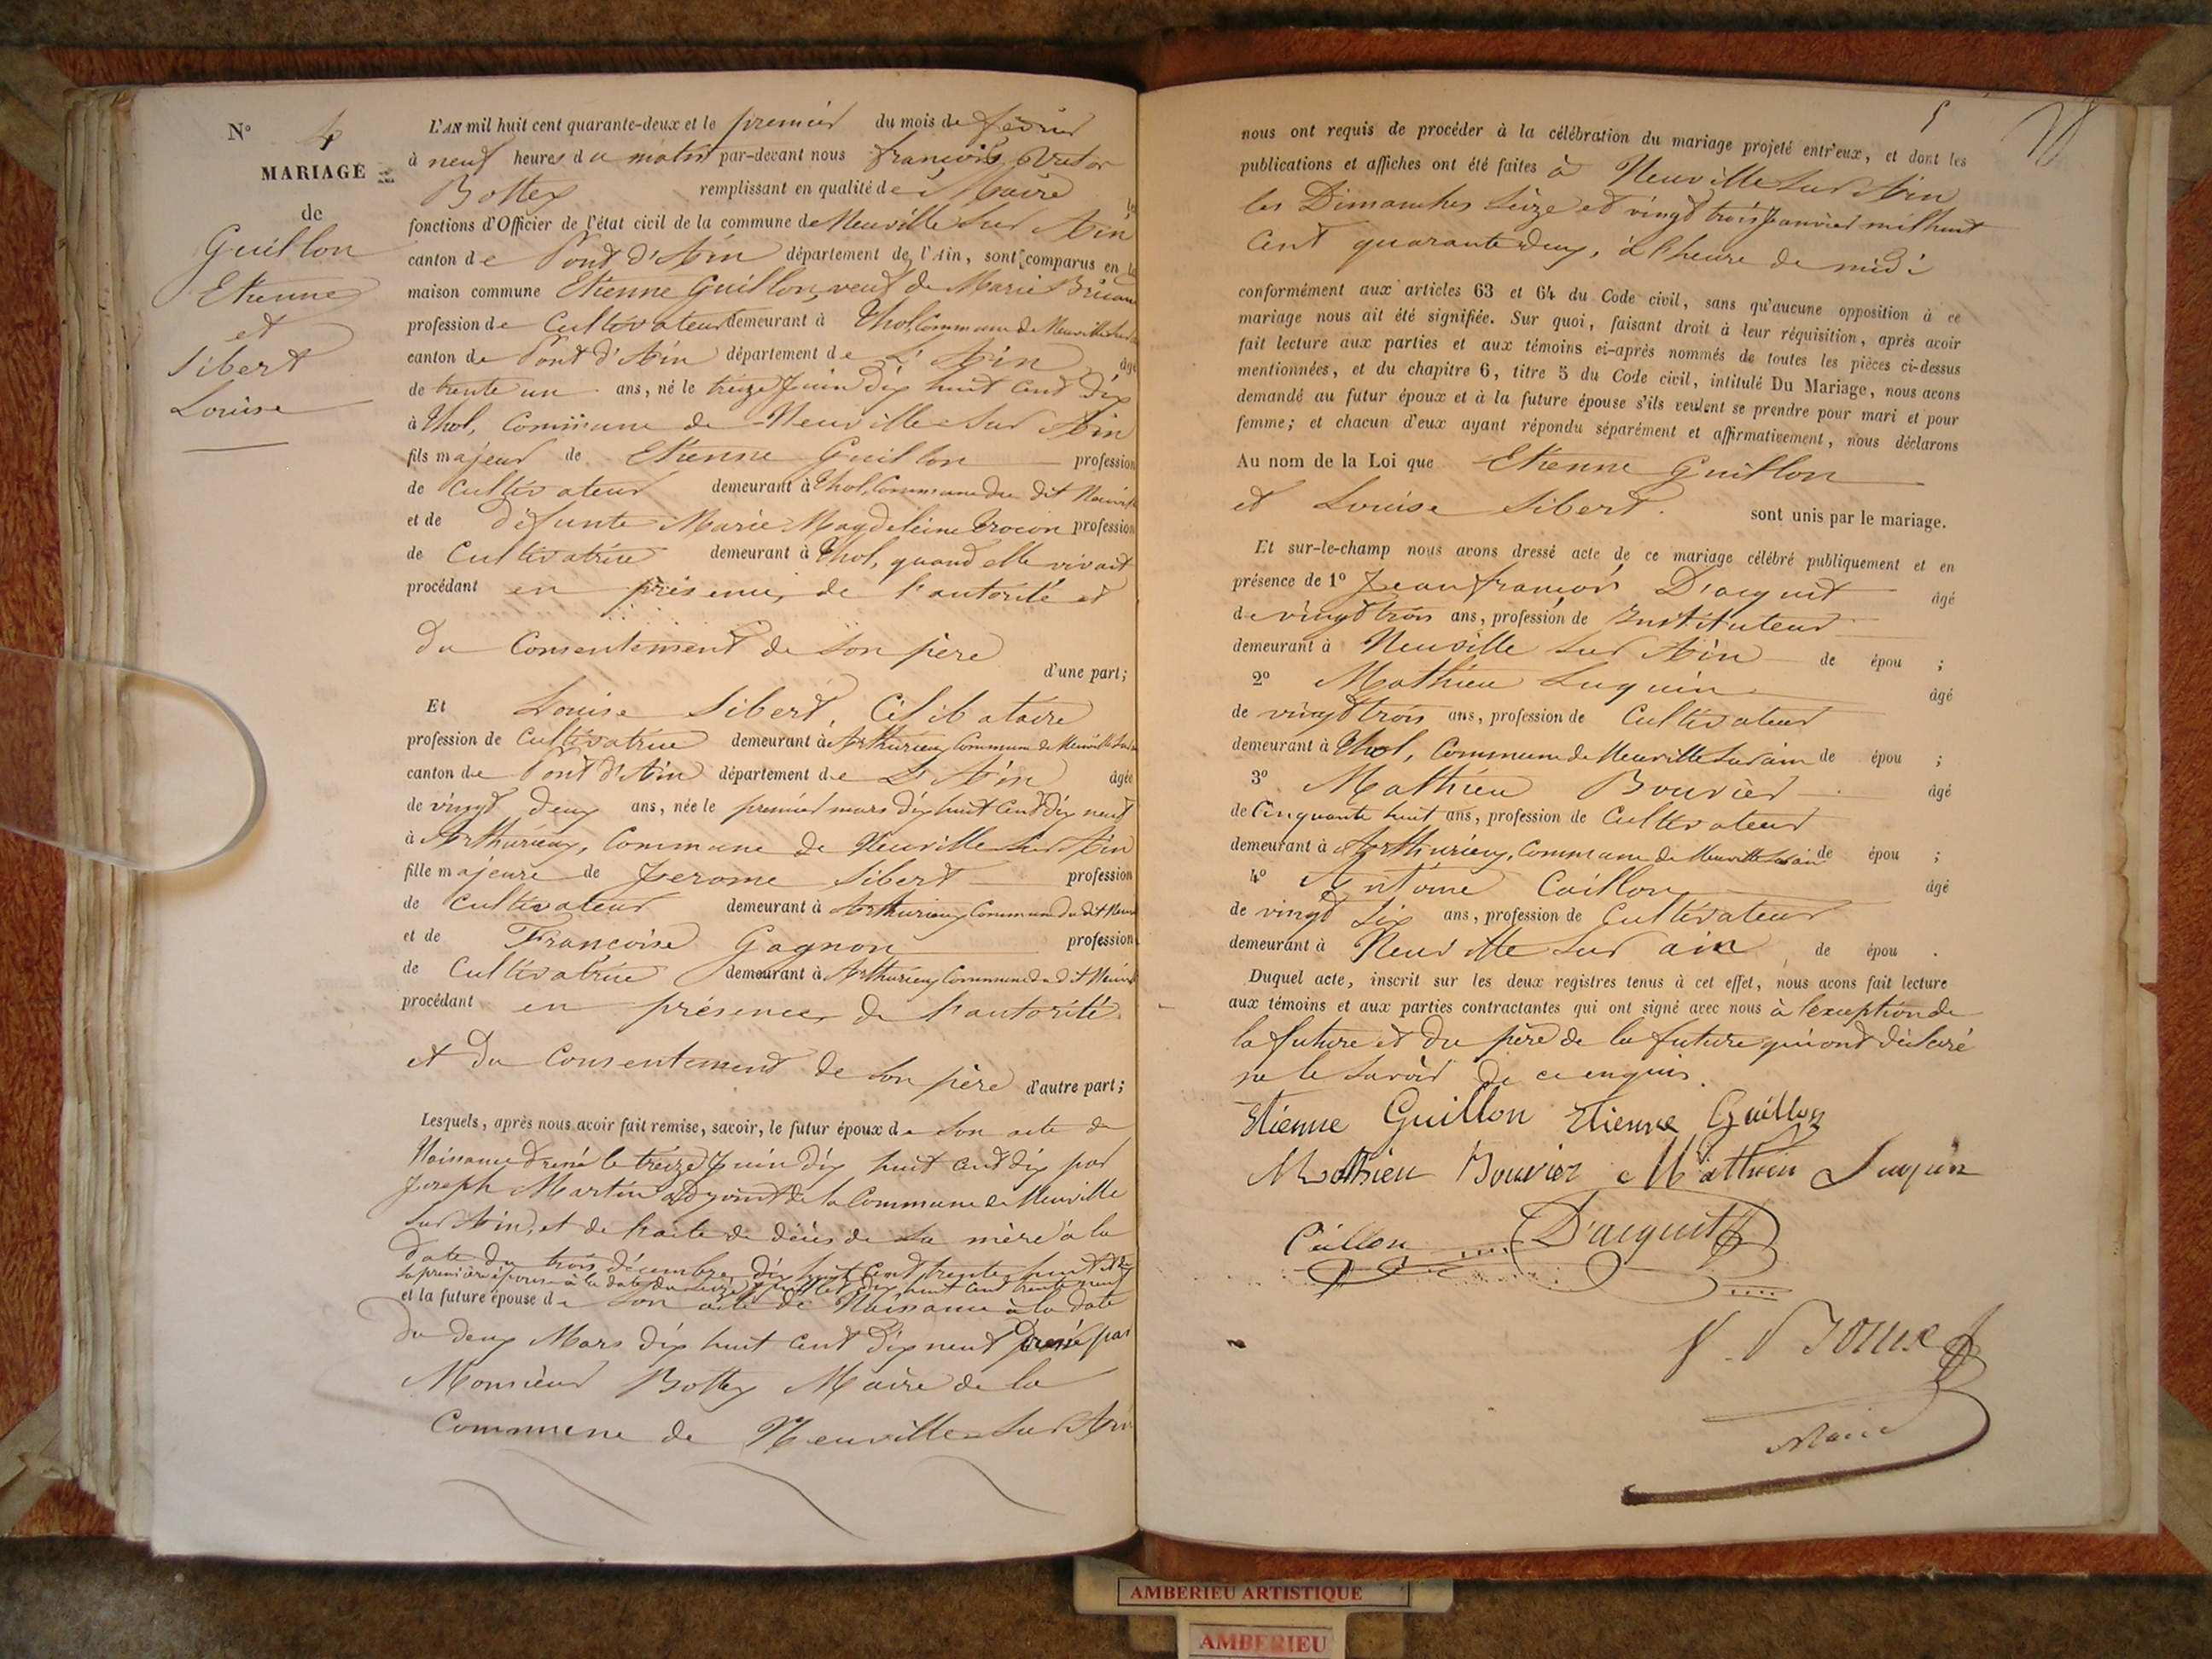 N° 4
MARIAGE
de
Guillon
Etienne
et
Sibert
Louise
L'AN mil huit cent quarante-deux et le premier du mois de février
à neuf heures du matin par-devant nous françois Victor
Bottex remplissant en qualité de Maire les
fonctions d'Officier de l'état civil de la commune de Neuville Sur Ain
canton de Pont d'Ain département de l'Ain, sont comparus en la
maison commune Etienne Guillon, veuf de Marie
profession de Cultivateur demeurant à Thol Commune de Neuville Sur
canton de Pont d'Ain département de L'Ain âgé
de trente un ans, né le treize Juin dix huit cent dix
à Thol, Commune de Neuville Sur Ain
fils majeur de Etienne Guillon profession
de Cultivateur demeurant à Thol, Commune du dit Neuville
et de défunte Marie Magdeleine Trocon profession
de Cultivatrice demeurant à Thol, quand elle vivait
procédant en présence de l'autorité et
du Consentement de Son père
d'une part;
Et Louise Sibert, Célibataire
profession de Cultivatrice demeurant à Arthurieux Commune de Neuville Sur
canton de Pont d'Ain département de L'Ain âgée
de vingt deux ans, née le premier mars dix huit Cent dix neuf
à Arthurieux, Commune de Neuville Sur Ain
fille majeure de Jerome Sibert profession
de Cultivateur demeurant à Arthurieux Commune du dit Neuv
et de Françoise Gagnon profession
de Cultivatrice demeurant à Arthurieux Commune du dit Neuv
procédant en présence de l'autorité
et du Consentement de Son père d'autre part;
Lesquels, après nous avoir fait remise, savoir, le futur époux de Son acte de
Naissance Dressé le treize Juin dix huit cent dix par
Joseph Martin adjoint de la Commune de Neuville
Sur Ain, et de l'acte de décès de Sa mère à la
date du trois décembre dix huit Cent trente huit et de
Sa première épouse à la date du Seize Juillet dix huit Cent trente neuf
et la future épouse de Son acte de Naissance à la date
du deux Mars dix huit Cent Dix neuf Dressé par
Monsieur Bottex Maire de la
Commune de Neuville Sur Ain
5
nous ont requis de procéder à la célébration du mariage projeté entr'eux, et dont les
publications et affiches ont été faites à Neuville Sur Ain
les Dimanches Seize et vingt trois Janvier mil huit
Cent quarante deux, à l'heure de midi
conformément aux articles 63 et 64 du Code civil, sans qu'aucune opposition à ce
mariage nous ait été signifiée. Sur quoi, faisant droit à leur réquisition, après avoir
fait lecture aux parties et aux témoins ci-après nommés de toutes les pièces ci-dessus
mentionnées, et du chapitre 6, titre 5 du Code civil, intitulé Du Mariage, nous avons
demandé au futur époux et à la future épouse s'ils veulent se prendre pour mari et pour
femme; et chacun d'eux ayant répondu séparément et affirmativement, nous déclarons
Au nom de la Loi que Etienne Guillon
et Louise Sibert. sont unis par le mariage.
Et sur-le-champ nous avons dressé acte de ce mariage célébré publiquement et en
présence de 1° Jean françois D'acquit âgé
de vingt trois ans, profession de Instituteur
demeurant à Neuville Sur Ain de épou ;
2° Mathieu Luquin âgé
de vingt trois ans, profession de Cultivateur
demeurant à Thol, Commune de Neuville Sur ain de épou ;
3° Mathieu Bouvier âgé
de Cinquante huit ans, profession de Cultivateur
demeurant à Arthurieux, Commune de Neuville Sur ain de épou ;
4° Antoine Caillon âgé
de vingt Six ans, profession de Cultivateur
demeurant à Neuville Sur ain, de épou .
Duquel acte, inscrit sur les deux registres tenus à cet effet, nous avons fait lecture
aux témoins et aux parties contractantes qui ont signé avec nous à l'exception de
la future et du père de la future qui ont déclaré
ne le Savoir de ce enquis.
Etienne Guillon Etienne Guillon
Mathieu Bouvier Mathieu Luquin
Caillon D'acquit
V. Bottex
Maire
AMBERIEU ARTISTIQUE
AMBERIEU